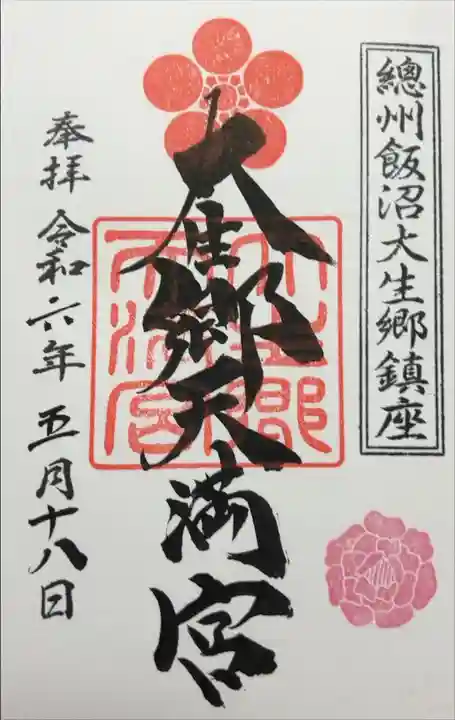 總州飯沼大生郷鎮座
大生郷天満宮
大生郷天満宮
奉拝 令和六年 五月十八日